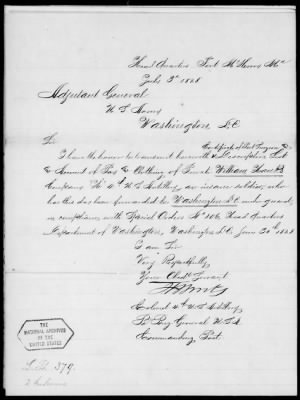 Head Quarters Fort McHenry Md
July 3d 1868
Adjutant General
U S Army
Washington D.C.
Sir
Certificate of Post Surgeon &
I have the honor to transmit herewith Descriptive List
& Account of Pay & Clothing of Private William
Company "H" 4th U.S. Artillery, an insane soldier, who
has this day been forwarded to Washington D.C. under guard,
in compliance with Special Orders No 106, Head Quarters
Department of Washington, Washington D.C. June 30th 1868
I am Sir
Very Respectfully,
Your Obedt Servant
Colonel 4th U.S. Artillery,
Bt Brig General U.S.A.
Commanding Post.
THE
NATIONAL ARCHIVES
OF THE
UNITED STATES
379.
2 Enclosures